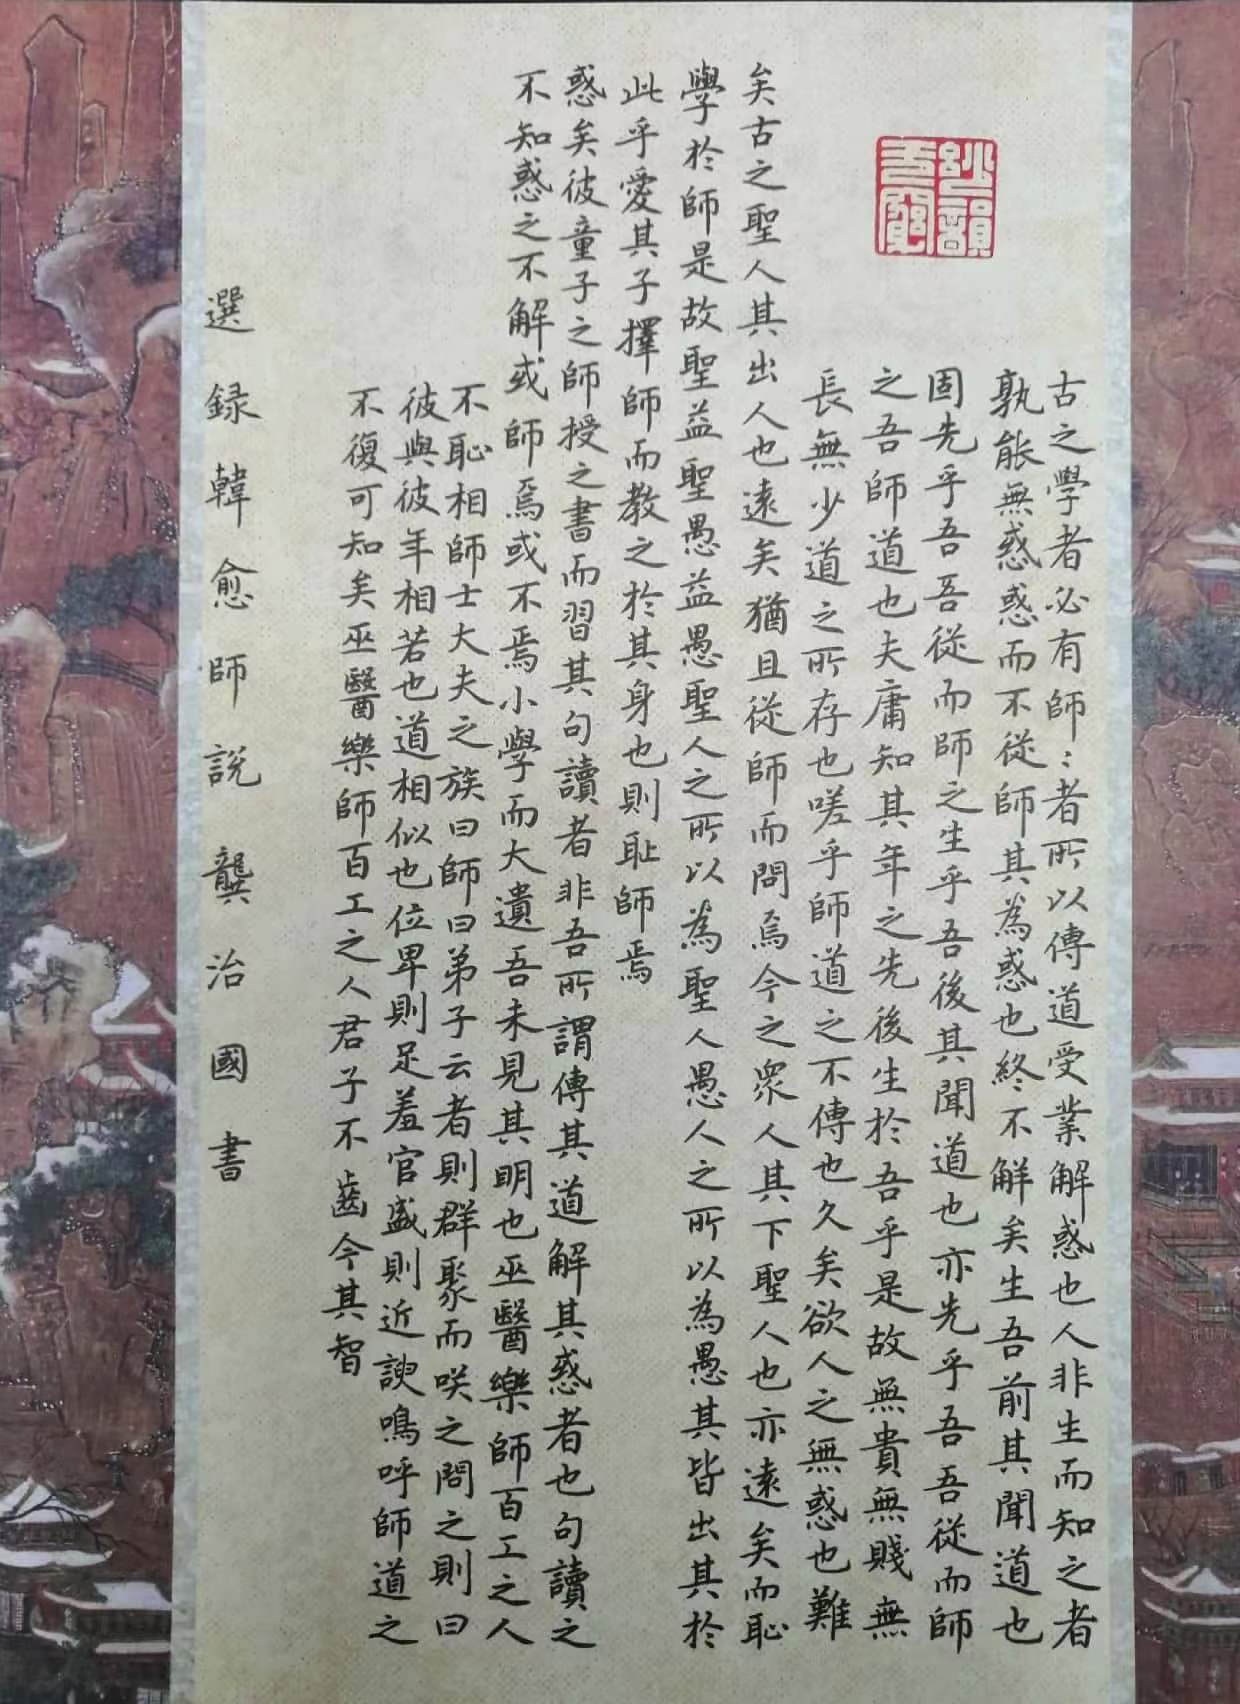 古之學者必有師〻者所以傳道受業解惑也人非生而知之者
孰能無惑惑而不從師其為惑也終不解矣生吾前其聞道也
固先乎吾吾從而師之生乎吾後其聞道也亦先乎吾吾從而師
之吾師道也夫庸知其年之先後生於吾乎是故無貴無賤無
長無少道之所存也嗟乎師道之不傳也久矣欲人之無惑也難
矣古之聖人其出人也遠矣猶且從師而問焉今之眾人其下聖人也亦遠矣而恥
學於師是故聖益聖愚益愚聖人之所以為聖人愚人之所以為愚其皆出其於
此乎愛其子擇師而教之於其身也則耻師焉
惑矣彼童子之師授之書而習其句讀者非吾所謂傳其道解其惑者也句讀之
不知惑之不解或師焉或不焉小學而大遺吾未見其明也巫醫樂師百工之人
不恥相師士大夫之族曰師曰弟子云者則群聚而咲之問之則曰
彼與彼年相若也道相似也位卑則足羞官盛則近諛鳴呼師道之
不復可知矣巫醫樂師百工之人君子不齒今其智
選録韓愈師説龔治國書